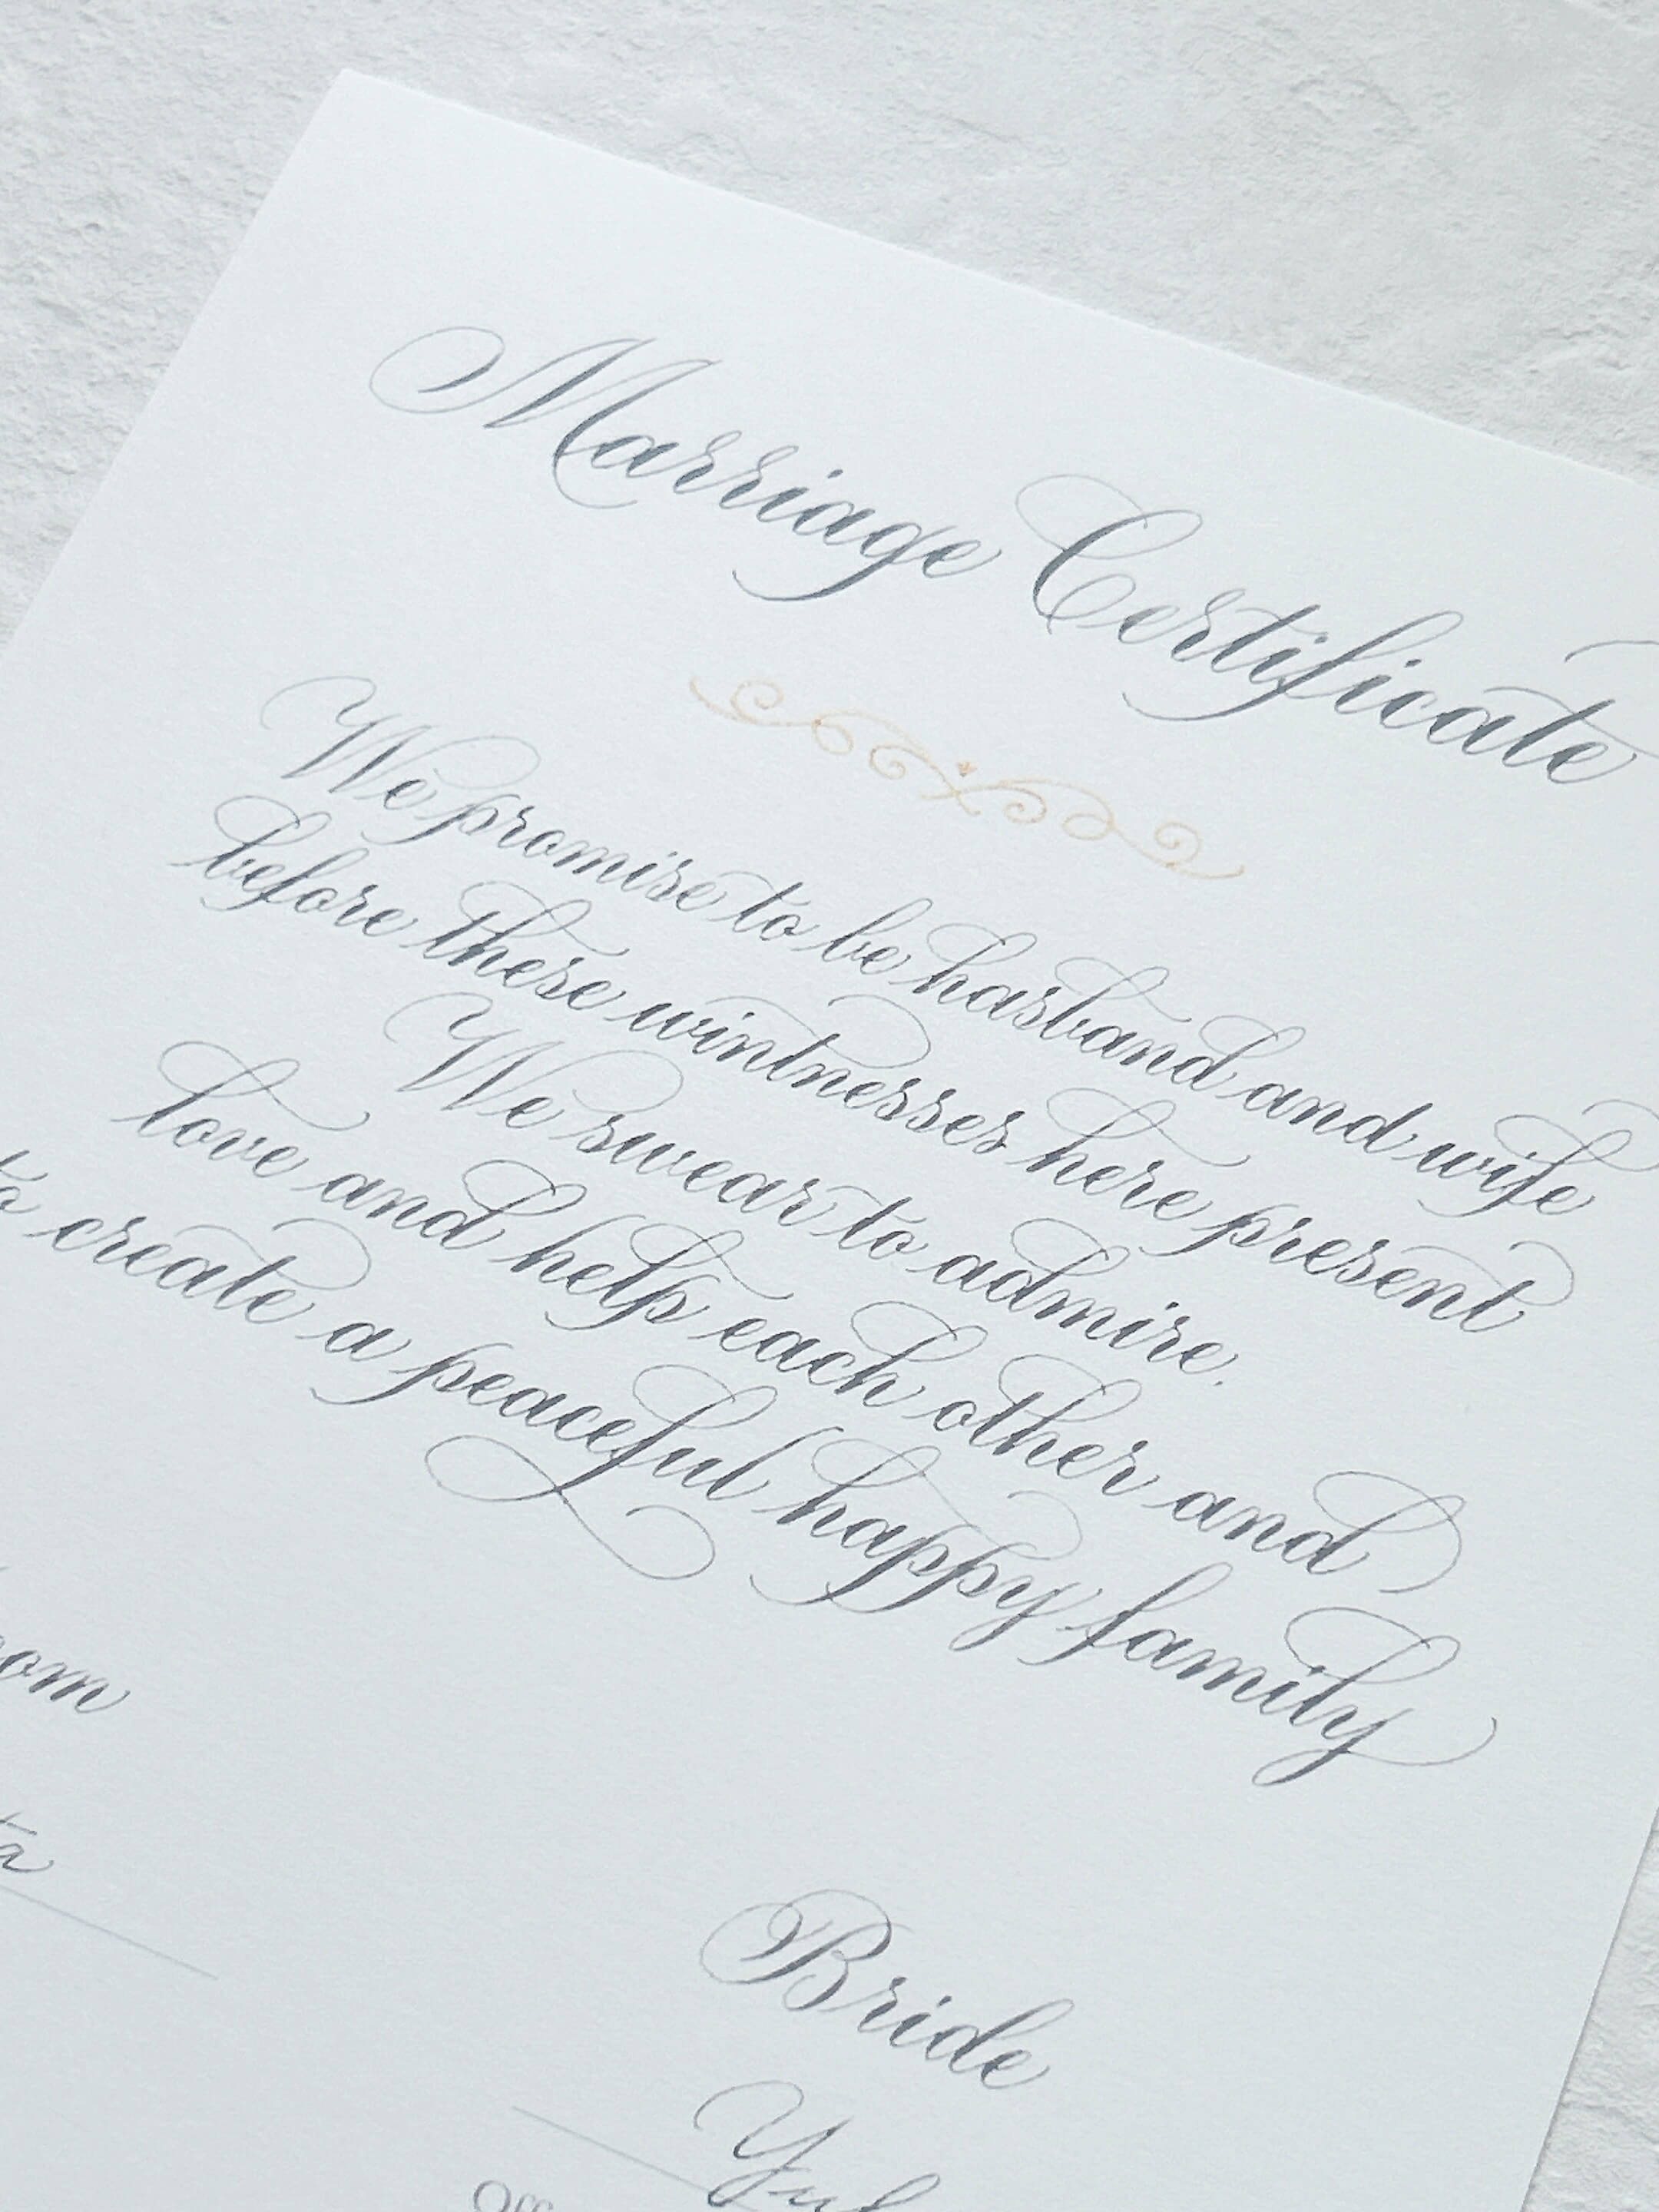 Marriage Certificate
We promise to be hasband and wife
before these wintnesses here present
We swear to admire.
love and help each other and
to create a peaceful happy family
Bride